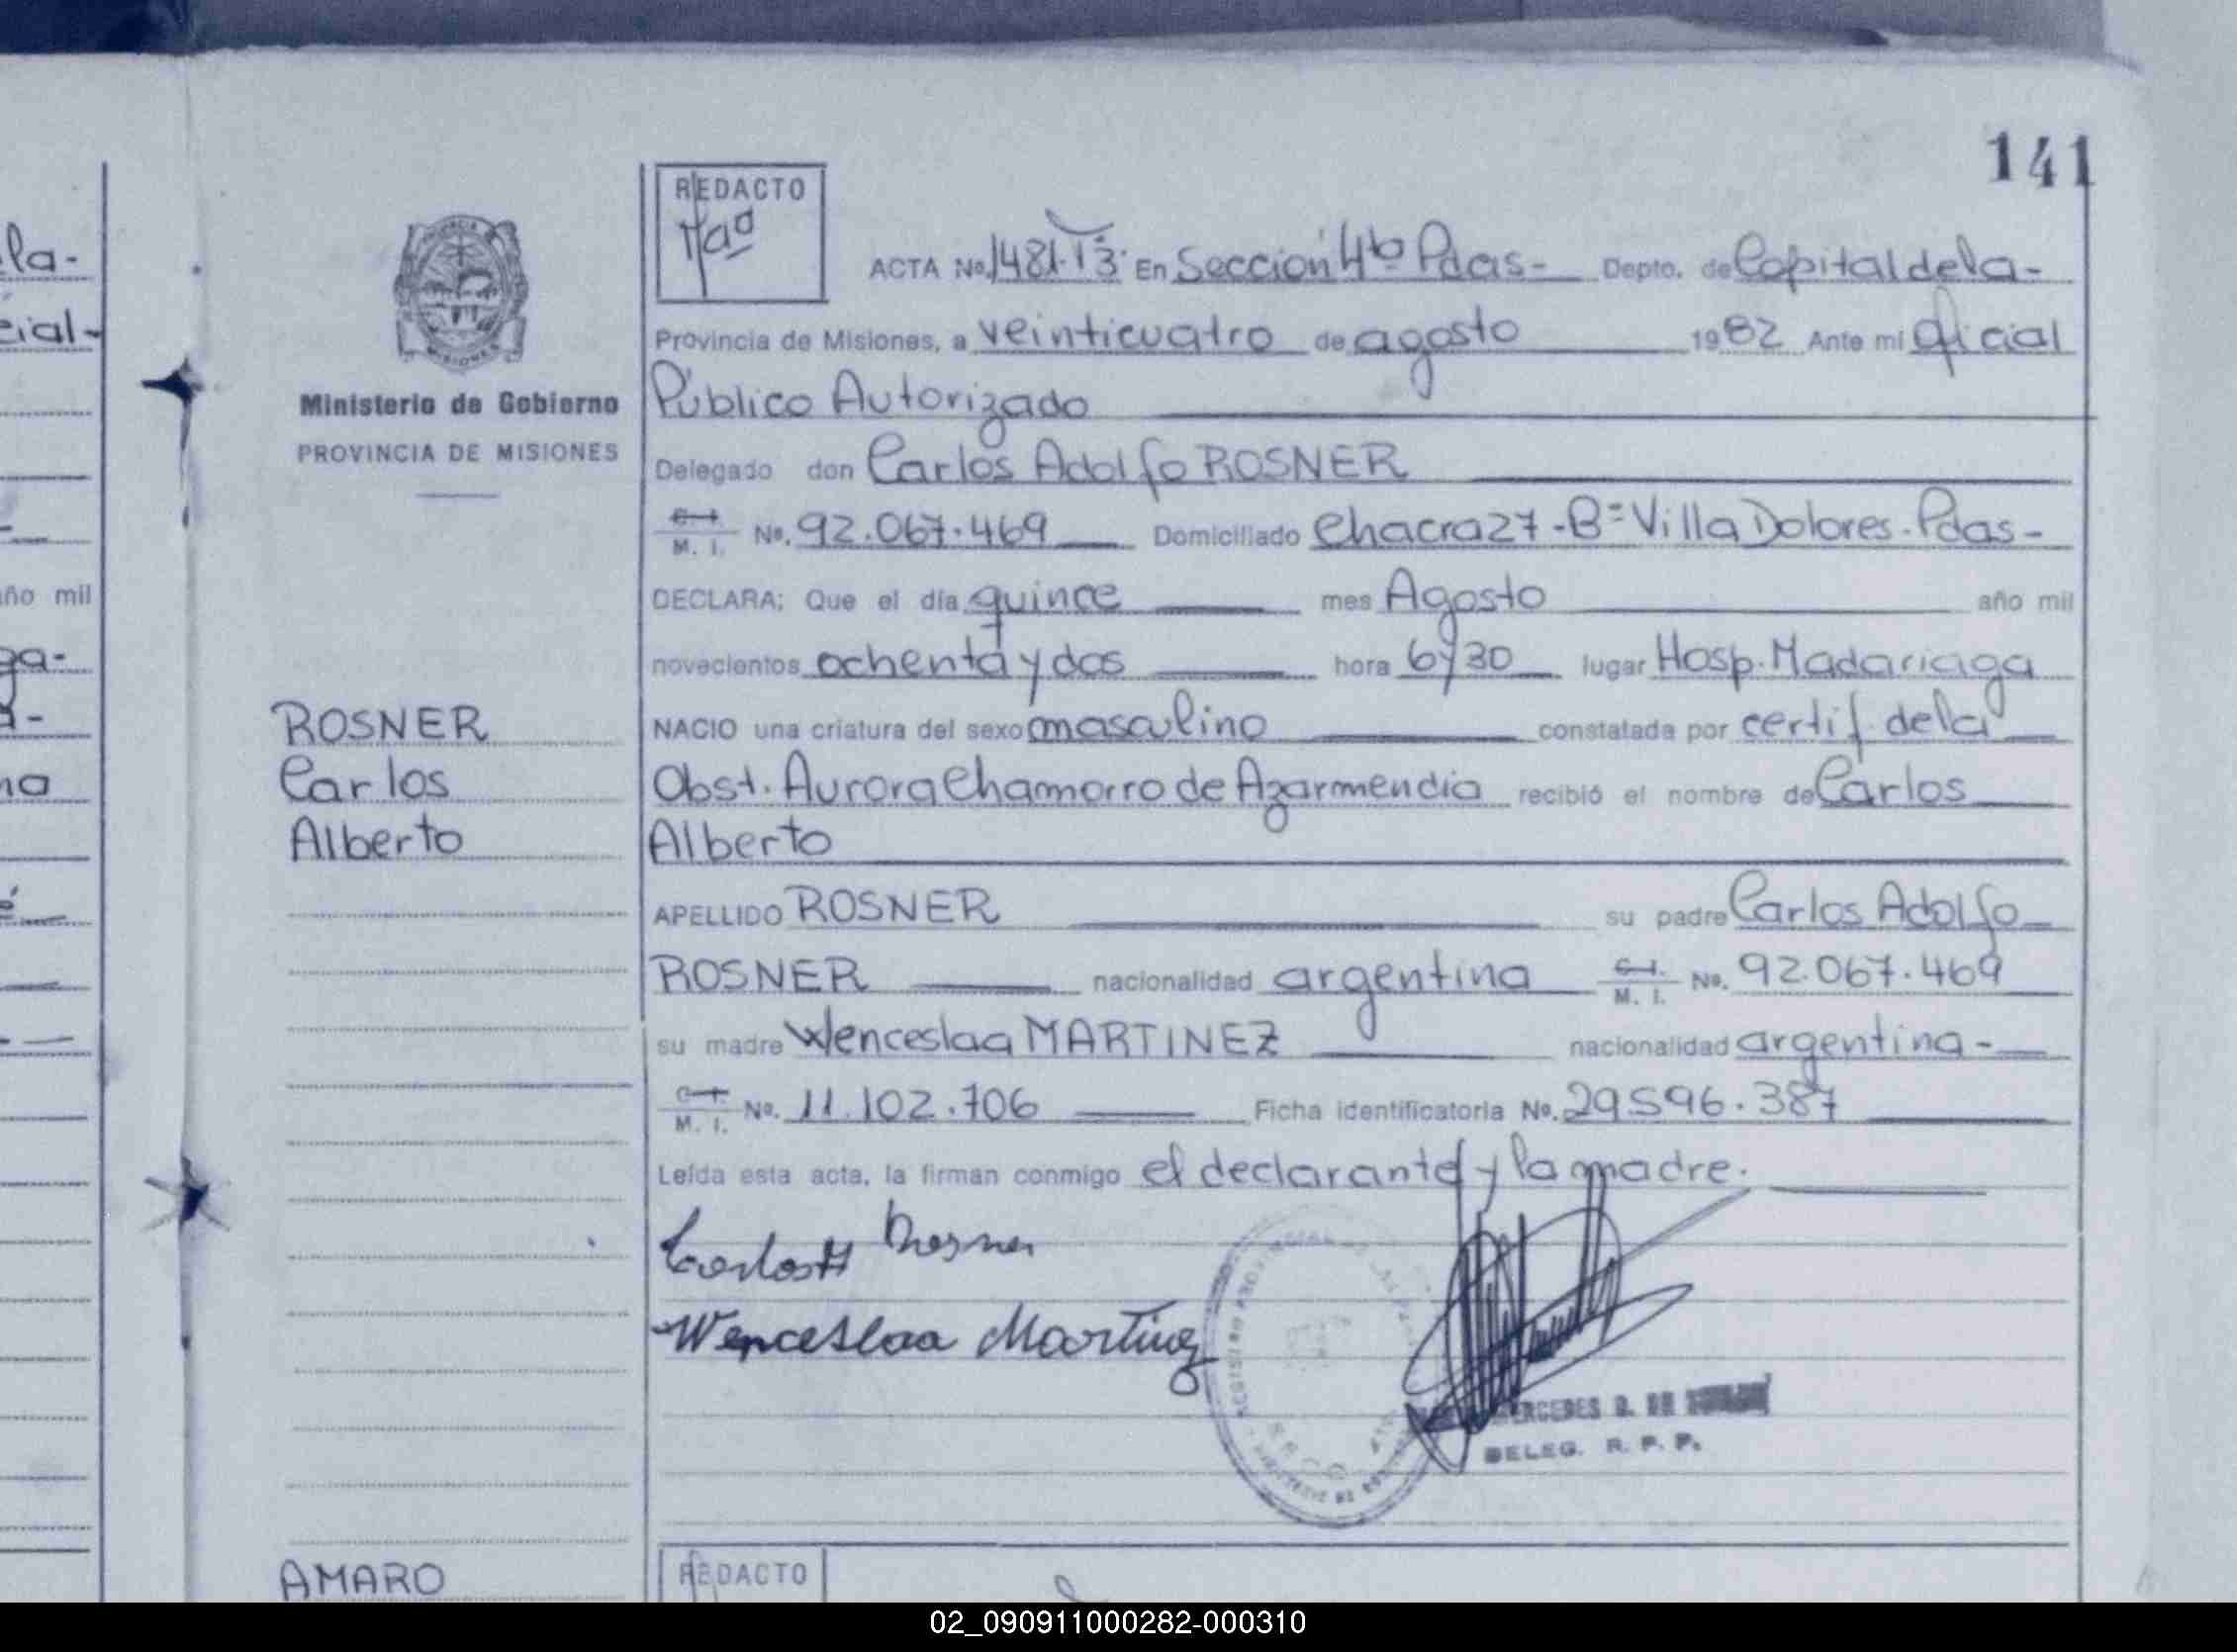 141
la-
cial-
año mil
ga-
a-
na
MISIONES
Ministerio de Gobierno
PROVINCIA DE MISIONES
ROSNER
Carlos
Alberto
REDACTO
ACTA No. 1481.T3. En Sección 4ta Pdas- Depto. de Capital de la-
Provincia de Misiones, a veinticuatro de agosto 1982 Ante mi Oficial
Público Autorizado
Delegado don Carlos Adolfo ROSNER
M. I. No. 92.067.469 Domiciliado Chacra 27-Bº Villa Dolores. Pdas-
DECLARA; Que el día quince mes Agosto año mil
novecientos ochenta y dos hora 6y30 lugar Hosp. Madariaga
NACIO una criatura del sexo masculino constatada por certif. de la
Obst. Aurora Chamorro de Azarmendia recibió el nombre de Carlos
Alberto
APELLIDO ROSNER su padre Carlos Adolfo
ROSNER nacionalidad argentina C.I. M. I. No. 92.067.469
su madre Wenceslaa MARTINEZ nacionalidad argentina-
M. I. No. 11.102.706 Ficha identificatoria No. 29596.387
Leída esta acta, la firman conmigo el declarante y la madre.
Carlos A Rosner
Wenceslaa Martinez
MERCEDES D. DE
DELEG. R. P. P.
AMARO
REDACTO
02_090911000282-000310